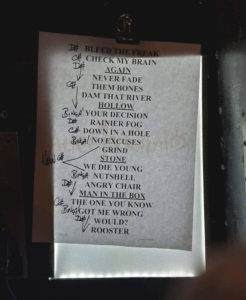 D# BLEED THE FREAK
C# CHECK MY BRAIN
D# AGAIN
NEVER FADE
C# THEM BONES
DAM THAT RIVER
HOLLOW
YOUR DECISION
D# RAINIER FOG
C# DOWN IN A HOLE
NO EXCUSES
GRIND
STONE
WE DIE YOUNG
NUTSHELL
D# ANGRY CHAIR
MAN IN THE BOX
C# THE ONE YOU KNOW
GOT ME WRONG
D# WOULD?
ROOSTER